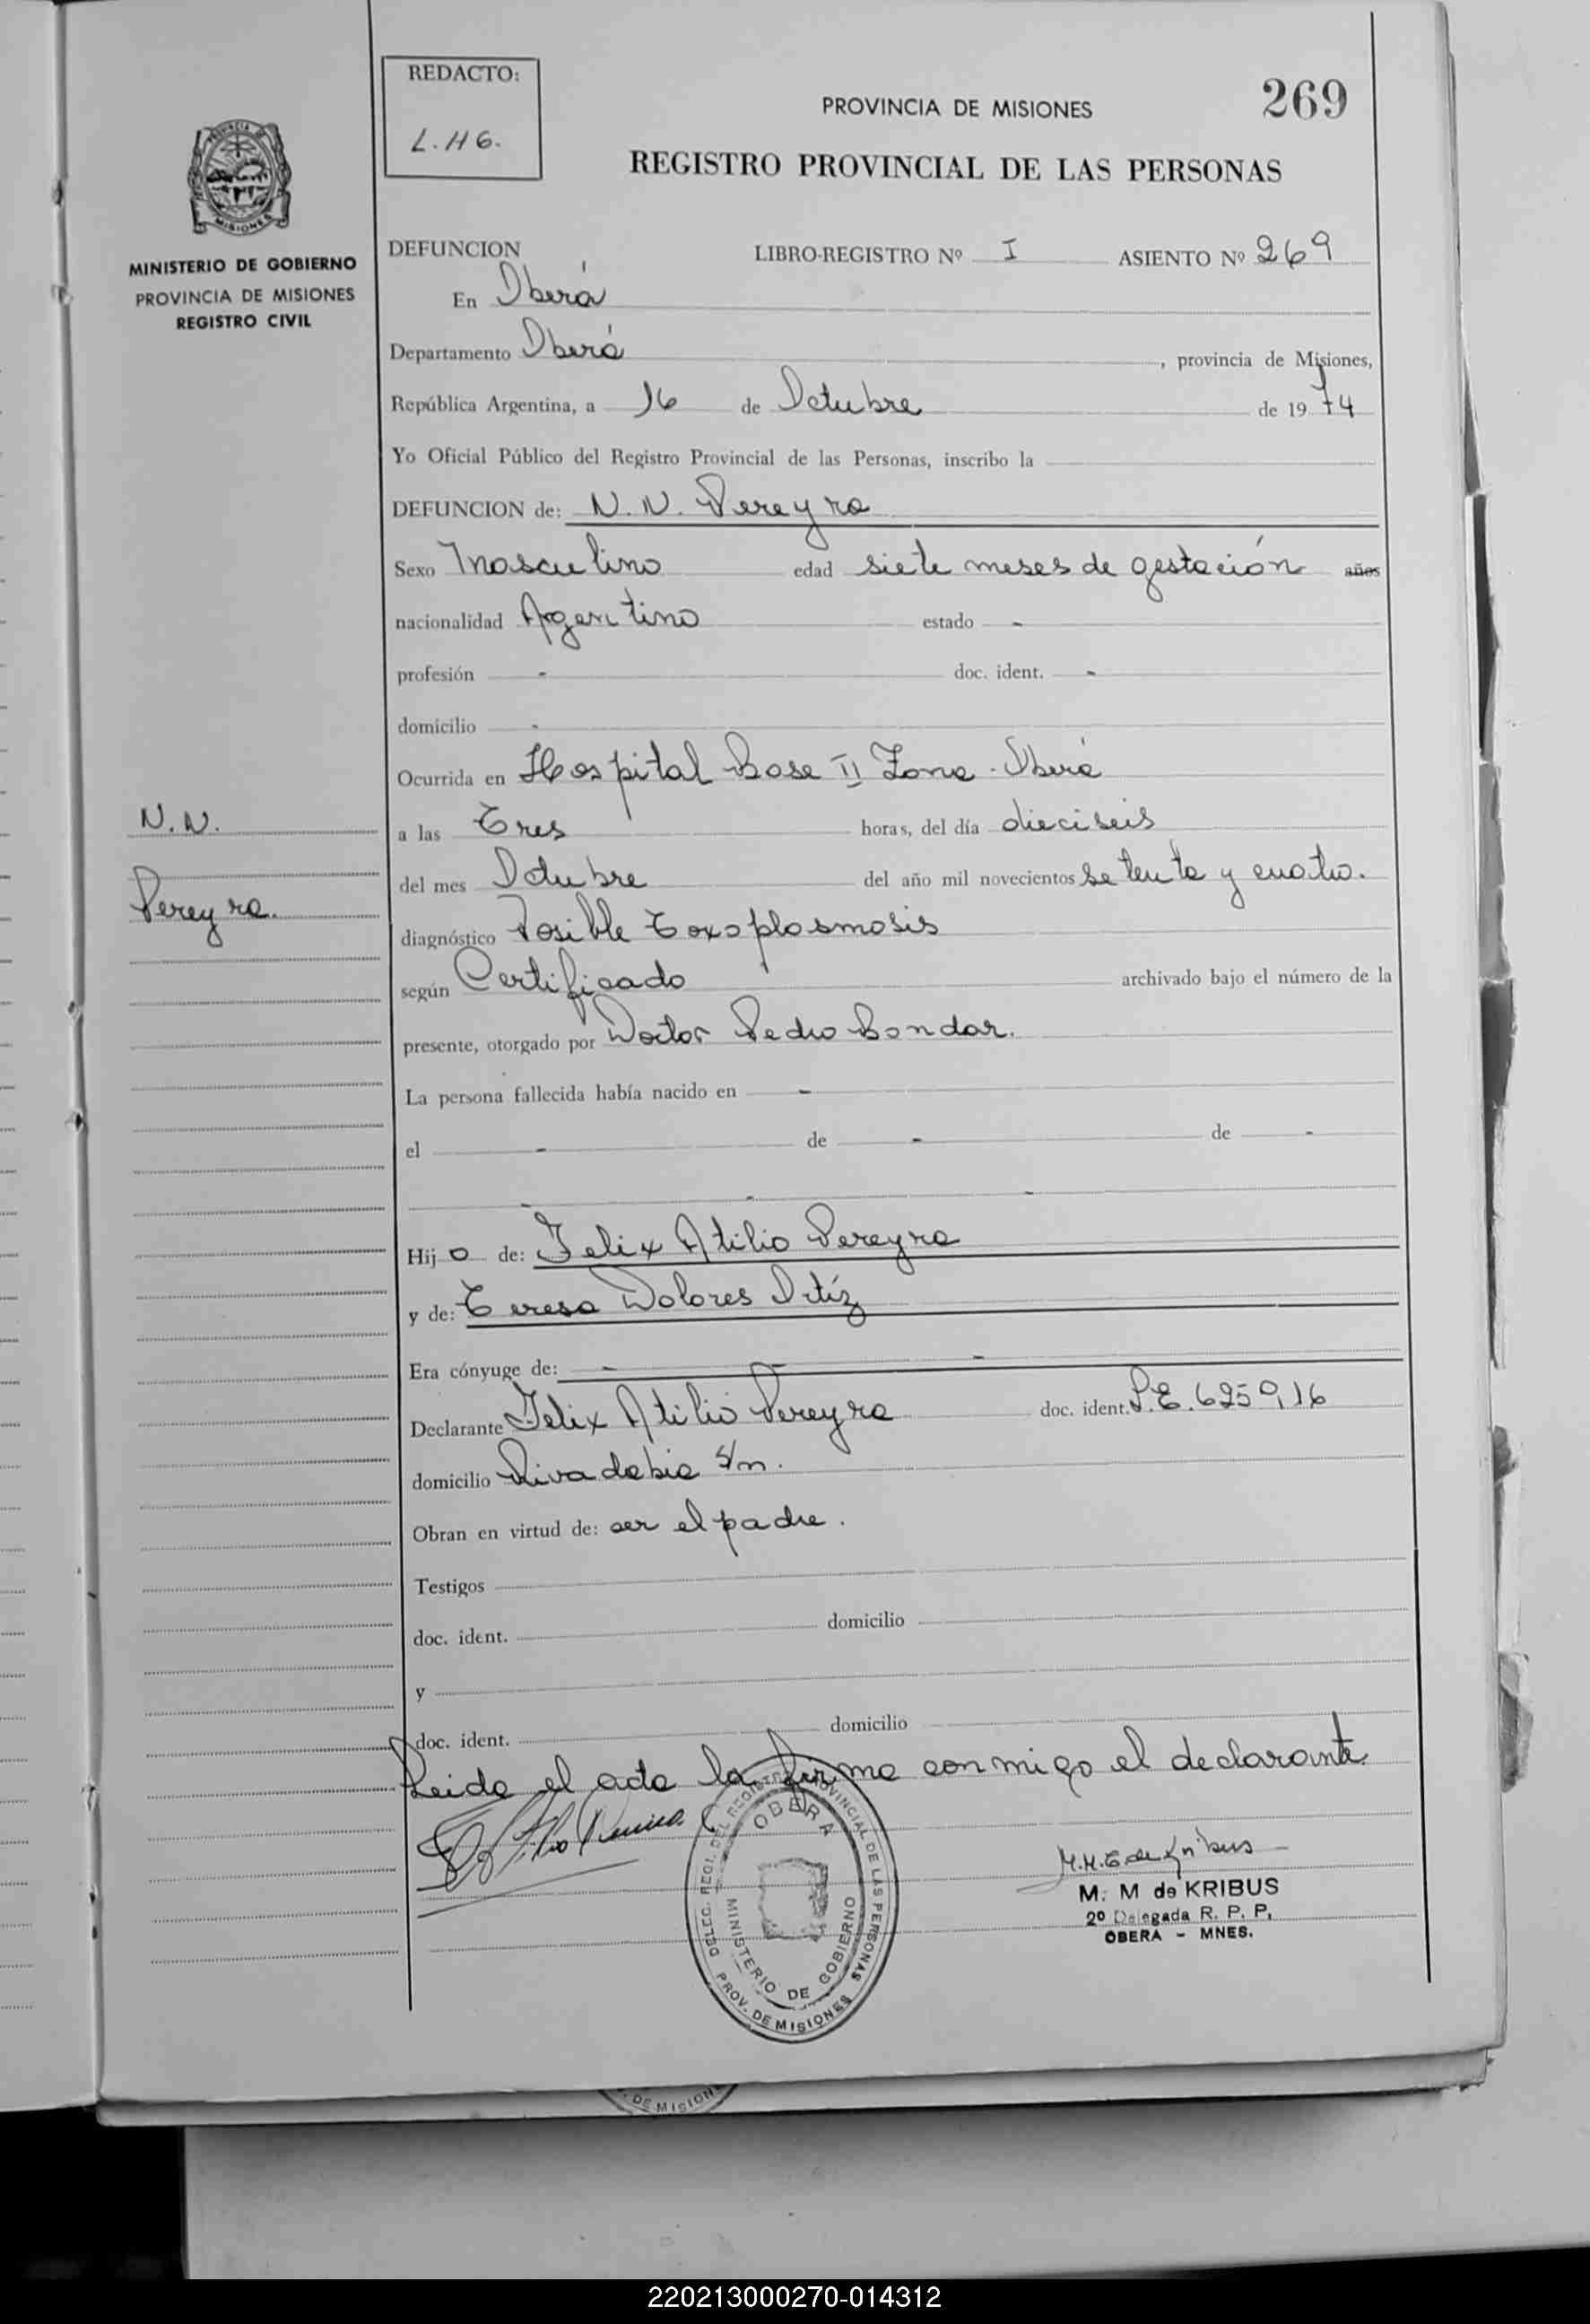 REDACTO:
L.HG.
PROVINCIA DE MISIONES
269
REGISTRO PROVINCIAL DE LAS PERSONAS
MISIONES
MINISTERIO DE GOBIERNO
PROVINCIA DE MISIONES
REGISTRO CIVIL
DEFUNCION LIBRO-REGISTRO Nº I ASIENTO Nº 269
En Oberá
Departamento Oberá, provincia de Misiones,
República Argentina, a 16 de Octubre de 1974
Yo Oficial Público del Registro Provincial de las Personas, inscribo la
DEFUNCION de: N.N. Pereyra
Sexo Masculino edad siete meses de gestación años
nacionalidad Argentino estado -
profesión - doc. ident. -
domicilio -
Ocurrida en Hospital Base II Zona - Oberá
N.N.
Pereyra.
a las Tres horas, del día dieciseis
del mes Octubre del año mil novecientos setenta y cuatro.
diagnóstico Posible Toxoplasmosis
según Certificado archivado bajo el número de la
presente, otorgado por Doctor Pedro Bondar.
La persona fallecida había nacido en -
el - de - de -
- - -
Hijo de: Felix Atilio Pereyra
y de: Teresa Dolores Ortíz
Era cónyuge de: - - -
Declarante Felix Atilio Pereyra doc. ident.
domicilio Rivadabia s/n.
Obran en virtud de: ser el padre.
Testigos
doc. ident. domicilio
y
doc. ident. domicilio
Leida el acta la firma conmigo el declarante
DELEG. REGI. DEL REGISTRO PROVINCIAL DE LAS PERSONAS
OBERA
MINISTERIO DE GOBIERNO
PROV. DE MISIONES
M. M de KRIBUS
2º Delegada R. P. P.
OBERA - MNES.
DE MISION
220213000270-014312